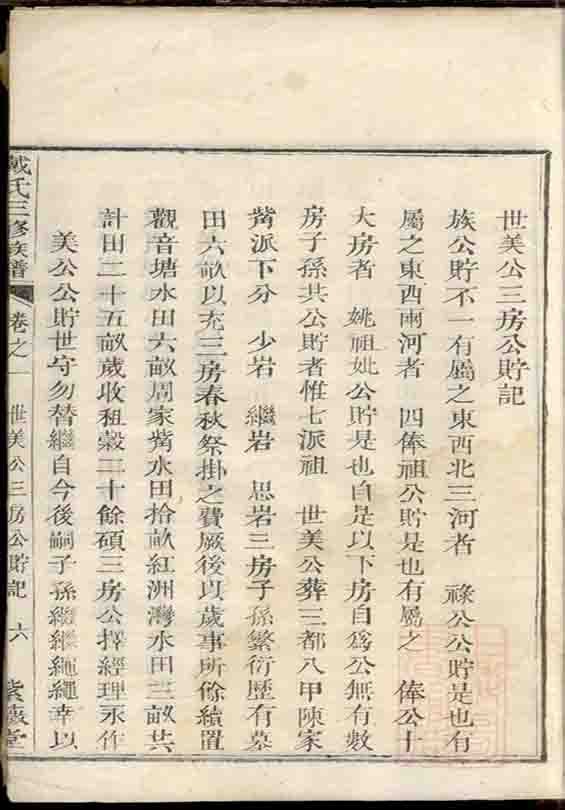 世美公三房公貯記
族公貯不一有屬之東西北三河者　祿公公貯是也有
屬之東西兩河者　四俸祖公貯是也有屬之　俸公十
大房者　姚祖妣公貯是也自是以下房自為公無有數
房子孫共公貯者惟七派祖　世美公葬三都八甲陳家
觜派下分　少岩　繼岩　思岩三房子孫繁衍歷有墓
田六畝以充三房春秋祭掛之費厥後以歲事所餘續置
觀音塘水田六畝周家觜水田拾畝紅洲灣水田三畝共
計田二十五畝歲收租穀二十餘碩三房公擇經理永作
美公公貯世守勿替繼自今後嗣子孫繼繼繩繩幸以
戴氏三修族譜　卷之一　世美公三房公貯記　六　紫薇堂